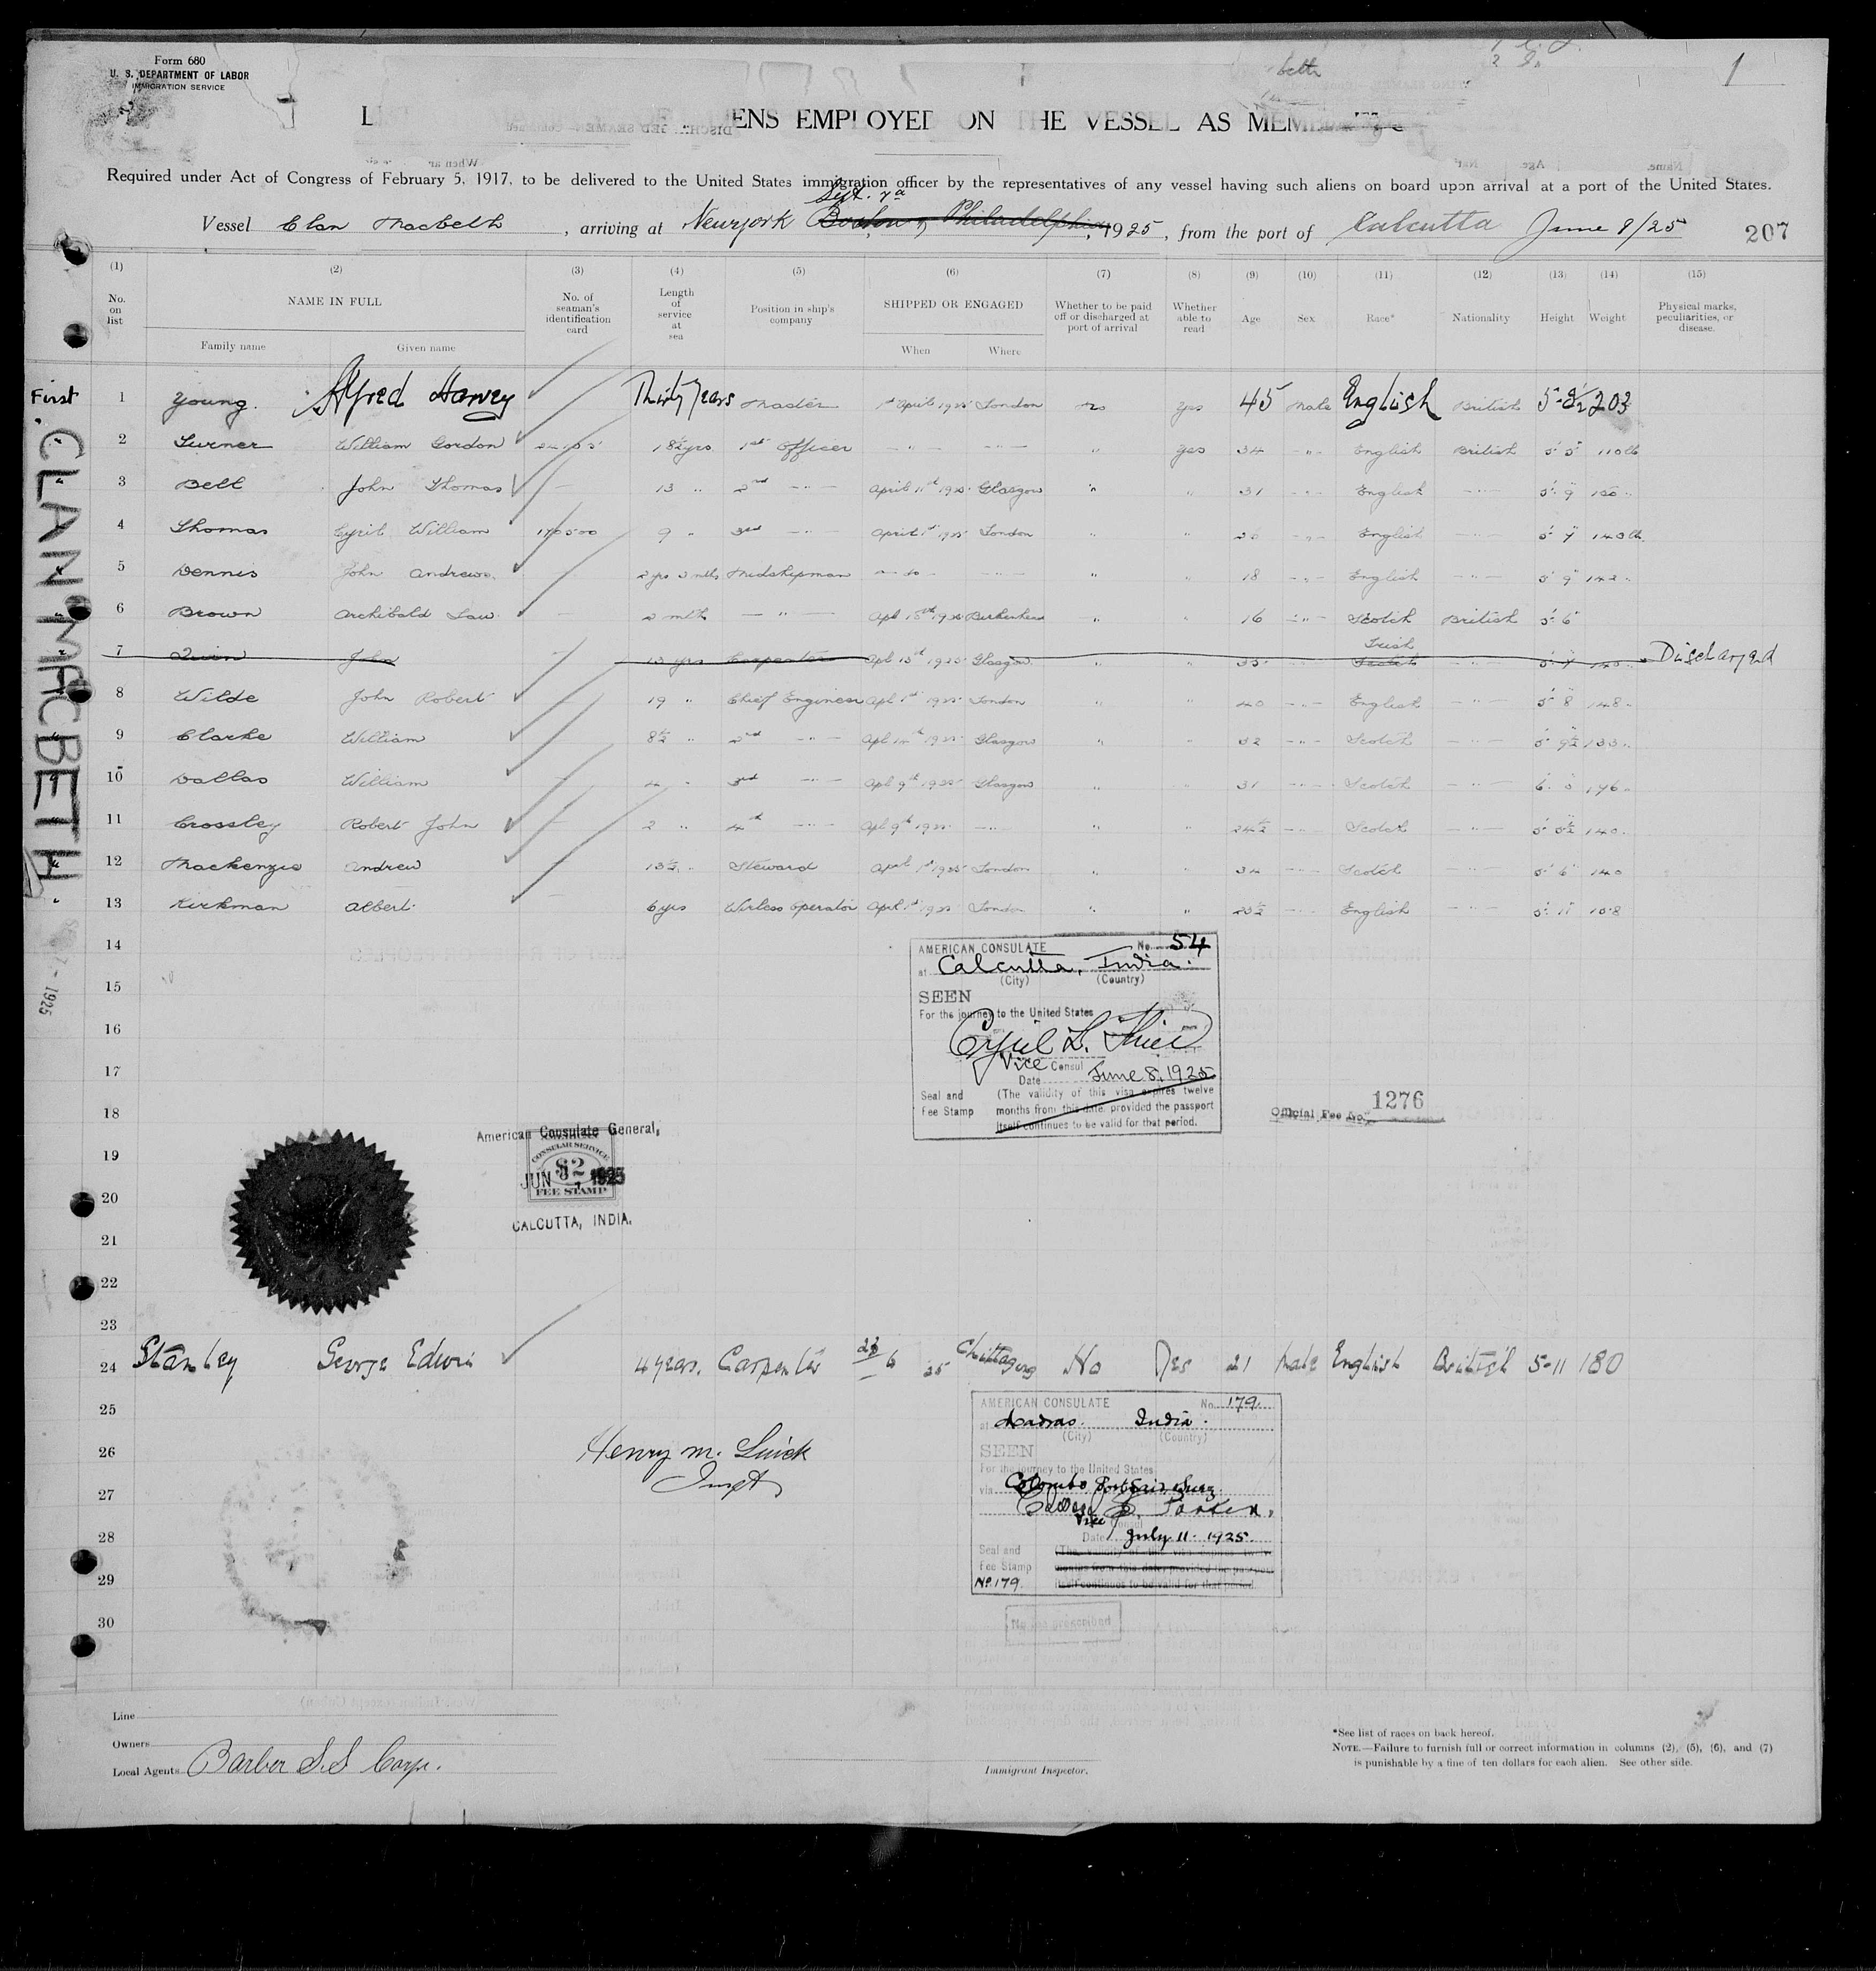 Form 680
U. S. DEPARTMENT OF LABOR
IMMIGRATION SERVICE
1
L ENS EMPLOYED ON THE VESSEL AS MEM
Required under Act of Congress of February 5, 1917, to be delivered to the United States immigration officer by the representatives of any vessel having such aliens on board upon arrival at a port of the United States.
Vessel Clan Macbeth, arriving at Newyork Sept. 7th Boston, Philadelphia, 1925, from the port of Calcutta June 8/25 207
(1) (2) (3) (4) (5) (6) (7) (8) (9) (10) (11) (12) (13) (14) (15)
No. on list NAME IN FULL No. of seaman's identification card Length of service at sea Position in ship's company SHIPPED OR ENGAGED Whether to be paid off or discharged at port of arrival Whether able to read Age Sex Race* Nationality Height Weight Physical marks, peculiarities, or disease.
Family name Given name When Where
First
CLAN MACBETH
1925
1 Young Alfred Harvey Thirty Years Master 1st April 1925 London no yes 45 male English British 203
2 Turner William Gordon 18½ yrs 1st Officer " yes 34 " English British 5' 5" 110 lb
3 Bell John Thomas 13 " 2nd " April 11th 1925 Glasgow " " 31 " English " 5' 9" 150 "
4 Thomas Cyril William 9 " 3rd " April 1st 1925 London " " English " 5' 7" 140 lb
5 Dennis John Andrew Midshipman " " 18 " English " 5' 9" 142 "
6 Brown Archibald Law 2 mth " Birkenhead " " 16 " Scotch British 5' 6"
7 Quin John 13 yrs Carpenter Apl 13th 1925 Glasgow " " 35 Irish Scotch " Discharged
8 Wilde John Robert 19 " Chief Engineer Apl 1st 1925 London " " 40 " English " 5' 8" 148 "
9 Clarke William 8½ " 2nd " Glasgow " " 32 " Scotch " 5' 9½ 133 "
10 Dallas William 4 " 3rd " Apl 9th 1925 Glasgow " " 31 " Scotch " 176 "
11 Crossley Robert John 2 " 4th " Apl 9th 1925 " " " 24½ " Scotch " 140 "
12 Mackenzie Andrew 13½ " Steward April 1st 1925 London " " 34 " Scotch " 5' 6" 140
13 Kirkman Albert 6 yrs Wirless Operator April 1st 1925 London " " " English " 5' 11" 158
14
15
16
17
18
19
20
21
22
23
AMERICAN CONSULATE No. 54
at Calcutta, India.
(City) (Country)
SEEN
For the journey to the United States
Cyril L. Thiel
Vice Consul
Date June 8, 1925
Seal and Fee Stamp
(The validity of this visa expires twelve
months from this date, provided the passport
itself continues to be valid for that period.
Official Fee No. 1276
American Consulate General,
CONSULAR SERVICE
$2
JUN 1925
FEE STAMP
CALCUTTA, INDIA.
24 Stanley George Edwin 4 years. Carpenter 23/6 25 Chittagong No Yes 21 Male English British 5-11 180
25
26
27
28
29
30
Henry M.
Inspt
AMERICAN CONSULATE No. 179.
at Madras. India.
(City) (Country)
SEEN
For the journey to the United States
via Colombo Port Said, Suez
Parker,
Vice Consul
Date July 11. 1925.
Seal and Fee Stamp
No. 179.
(The validity of this visa expires twelve
months from this date, provided the passport
itself continues to be valid for that period.
No fee prescribed
Line
Owners
Local Agents Barber S.S Corp.
Immigrant Inspector.
*See list of races on back hereof.
NOTE.—Failure to furnish full or correct information in columns (2), (5), (6), and (7)
is punishable by a fine of ten dollars for each alien. See other side.